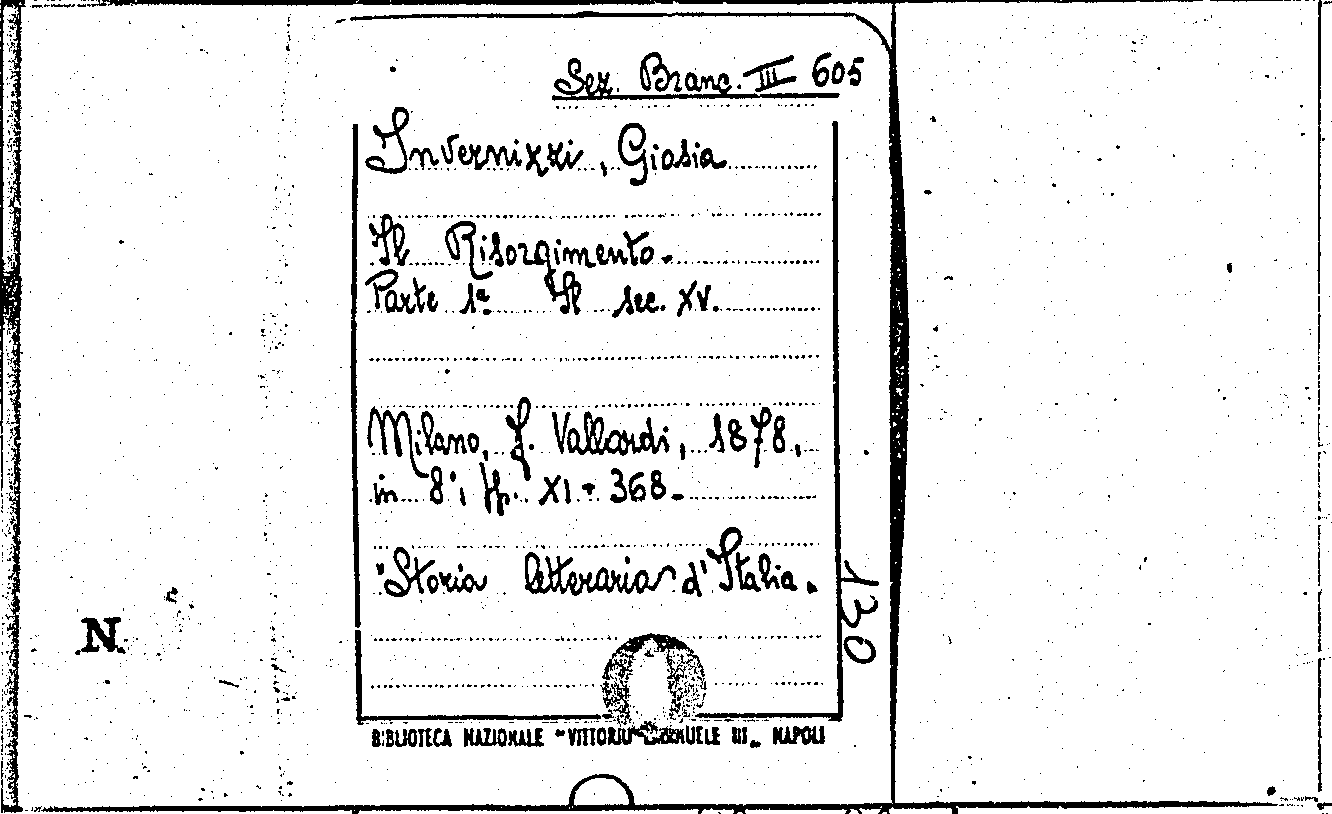 Sez. Branc. III 605
Invernizzi, Giosia
Il Risorgimento.
Parte 1ª Il sec. XV.
Milano, F. Vallardi, 1878,
in 8°, pp. XI - 368.
"Storia letteraria d'Italia.
130
N.
BIBLIOTECA NAZIONALE "VITTORIO EMANUELE III„ NAPOLI